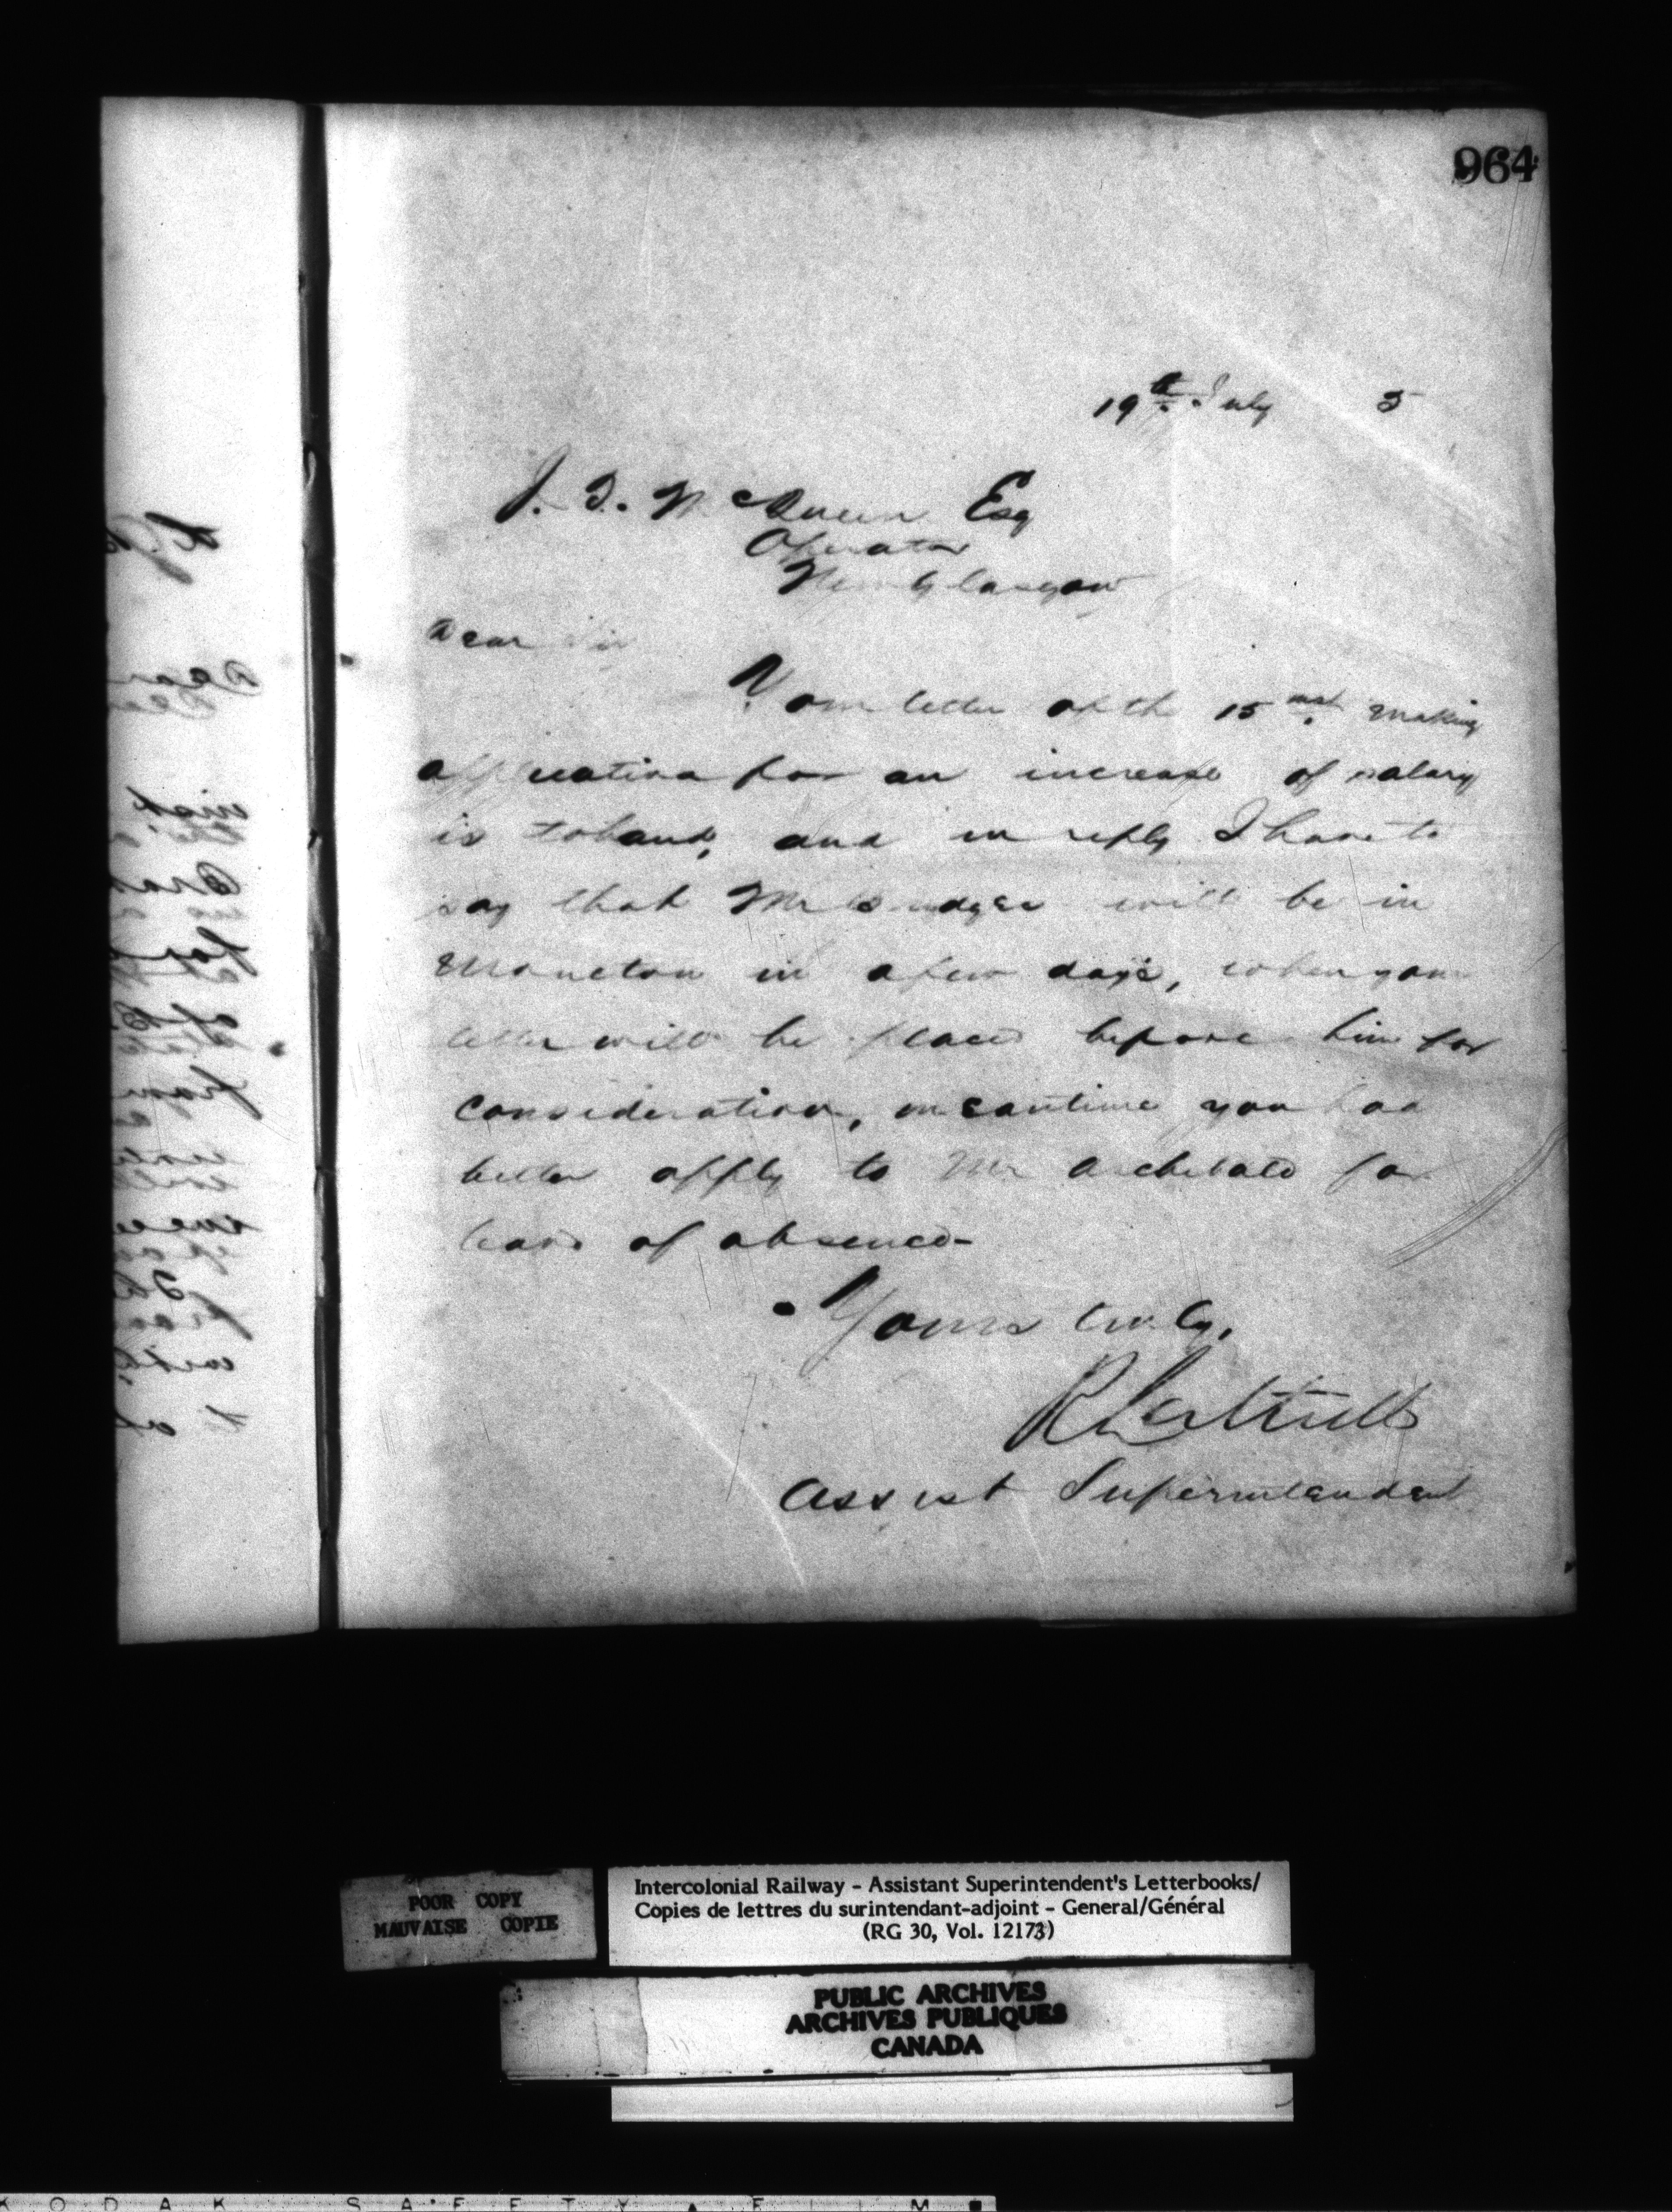 964
19th July 5
J. D. McQueen Esq
Operator
New Glasgow
Dear Sir
Your letter of the 15 inst making
application for an increase of salary
is to hand, and in reply I have to
say that Mr Brydges will be in
Moncton in a few days, when your
letter will be placed before him for
consideration, meantime you had
better apply to Mr Archibald for
leave of absence-
Yours truly,
Assist Superintendent
POOR COPY
MAUVAISE COPIE
Intercolonial Railway - Assistant Superintendent's Letterbooks/
Copies de lettres du surintendant-adjoint - General/Général
(RG 30, Vol. 12173)
PUBLIC ARCHIVES
ARCHIVES PUBLIQUES
CANADA
KODAK SAFETY FILM